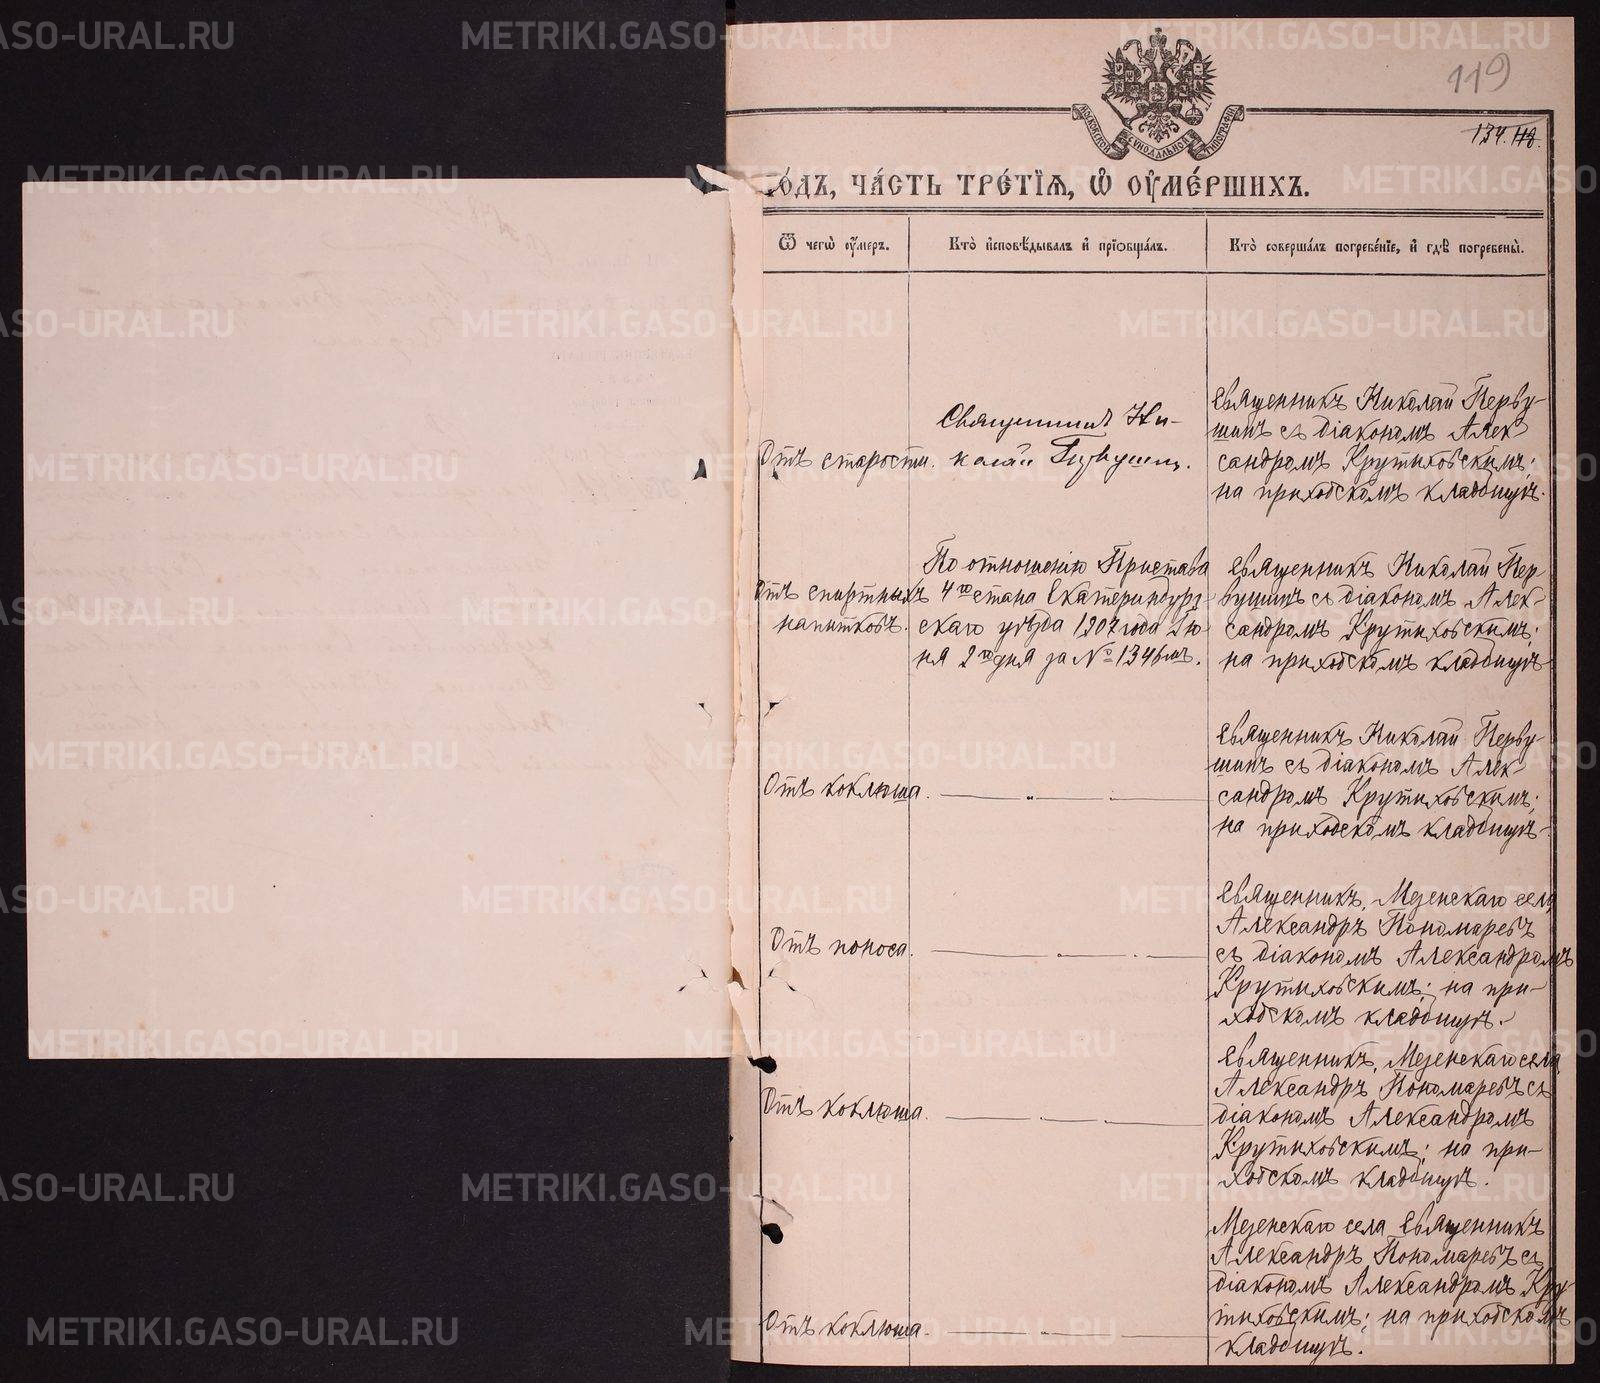 119
134. 118.
МОСКОВСКОЙ СѴНОДАЛЬНОЙ ТИПОГРАФІИ
го́дъ, ча́сть тре́тїѧ, ѡ҆ ᲂу҆ме́ршихъ.
Ѿ чегѡ̀ ᲂу҆́меръ.
Кто̀ и҆сповѣ́дывалъ и҆ прїѡбща́лъ.
Кто̀ соверша́лъ погребе́нїе, и҆ гдѣ̀ погребены̀.
Отъ старости.
Священникъ Ни-
колай Первушинъ.
Священникъ Николай Перву-
шинъ съ діакономъ Алек-
сандромъ Крутиховскимъ;
на приходскомъ кладбищѣ.
Отъ спиртныхъ
напитковъ.
По отношенію Пристава
4го стана Екатеринбург-
скаго уѣзда 1907 года Iю-
ня 2го дня за № 1346мъ.
Священникъ Николай Пер-
вушинъ съ діакономъ Алек-
сандромъ Крутиховскимъ;
на приходскомъ кладбищѣ
Отъ коклюша.
Священникъ Николай Перву-
шинъ съ діакономъ Алек-
сандромъ Крутиховскимъ;
на приходскомъ кладбищѣ.
Отъ поноса.
Священникъ, Мезенскаго села
Александръ Пономаревъ
съ діакономъ Александромъ
Крутиховскимъ; на при-
ходскомъ кладбищѣ.
Отъ коклюша.
Священникъ, Мезенскаго села
Александръ Пономаревъ съ
діакономъ Александромъ
Крутиховскимъ; на при-
ходскомъ кладбищѣ.
Отъ коклюша.
Мезенскаго села Священникъ
Александръ Пономаревъ съ
діакономъ Александромъ Кру
тиховскимъ; на приходскомъ
кладбищѣ.
METRIKI.GASO-URAL.RU